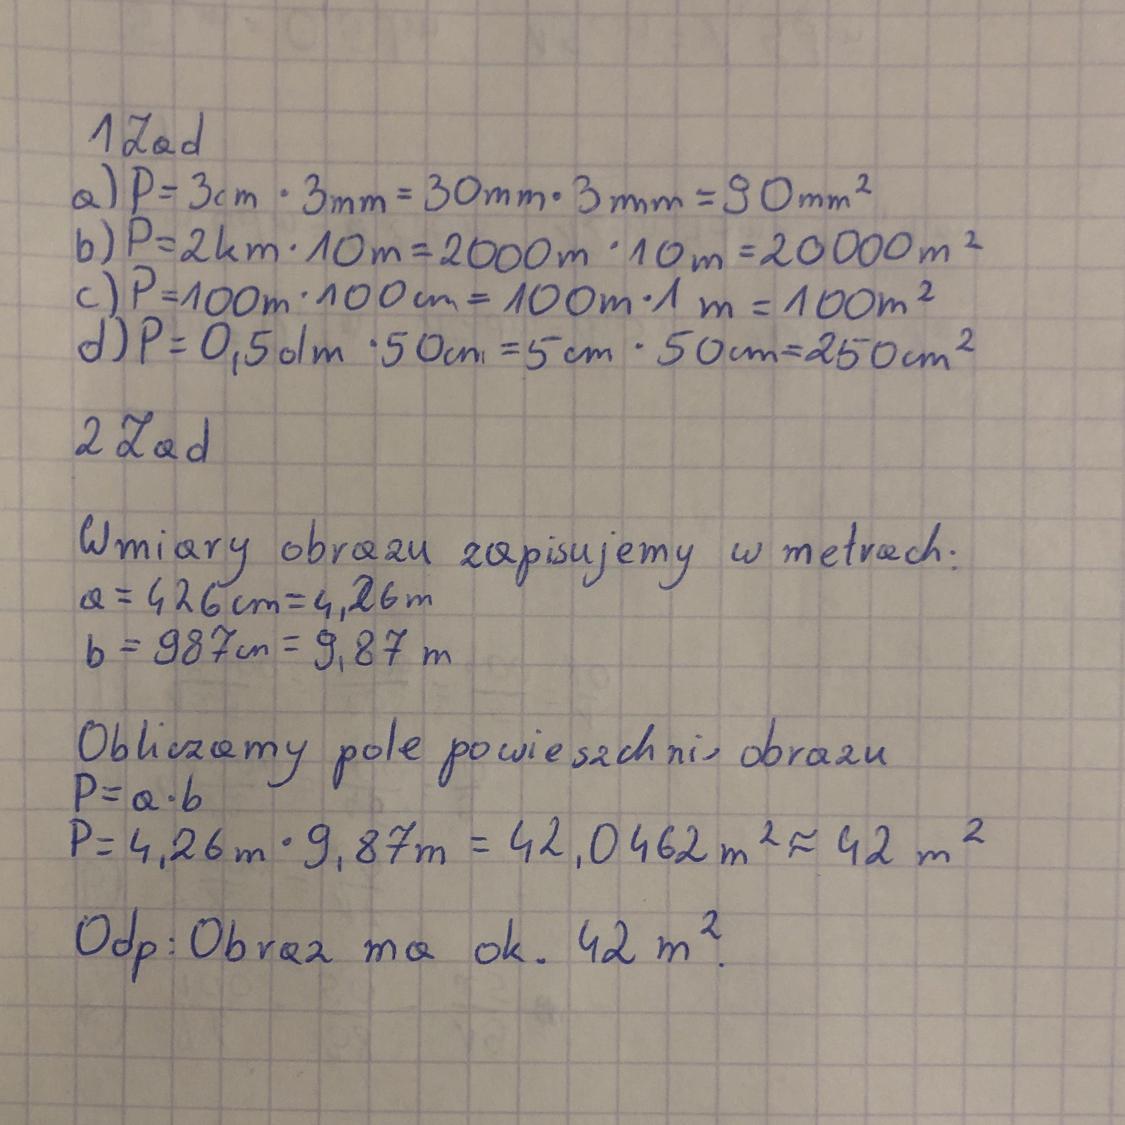 1 Zad
a) P = 3cm · 3mm = 30mm · 3mm = 90mm²
b) P = 2km · 10m = 2000m · 10m = 20000m²
c) P = 100m · 100cm = 100m · 1 m = 100m²
d) P = 0,5dm · 50cm = 5cm · 50cm = 250cm²
2 Zad
Wmiary obrazu zapisujemy w metrach:
a = 426cm = 4,26m
b = 987cm = 9,87 m
Obliczamy pole powieszchni obrazu
P = a · b
P = 4,26m · 9,87m = 42,0462m² ≈ 42 m²
Odp: Obraz ma ok. 42 m².